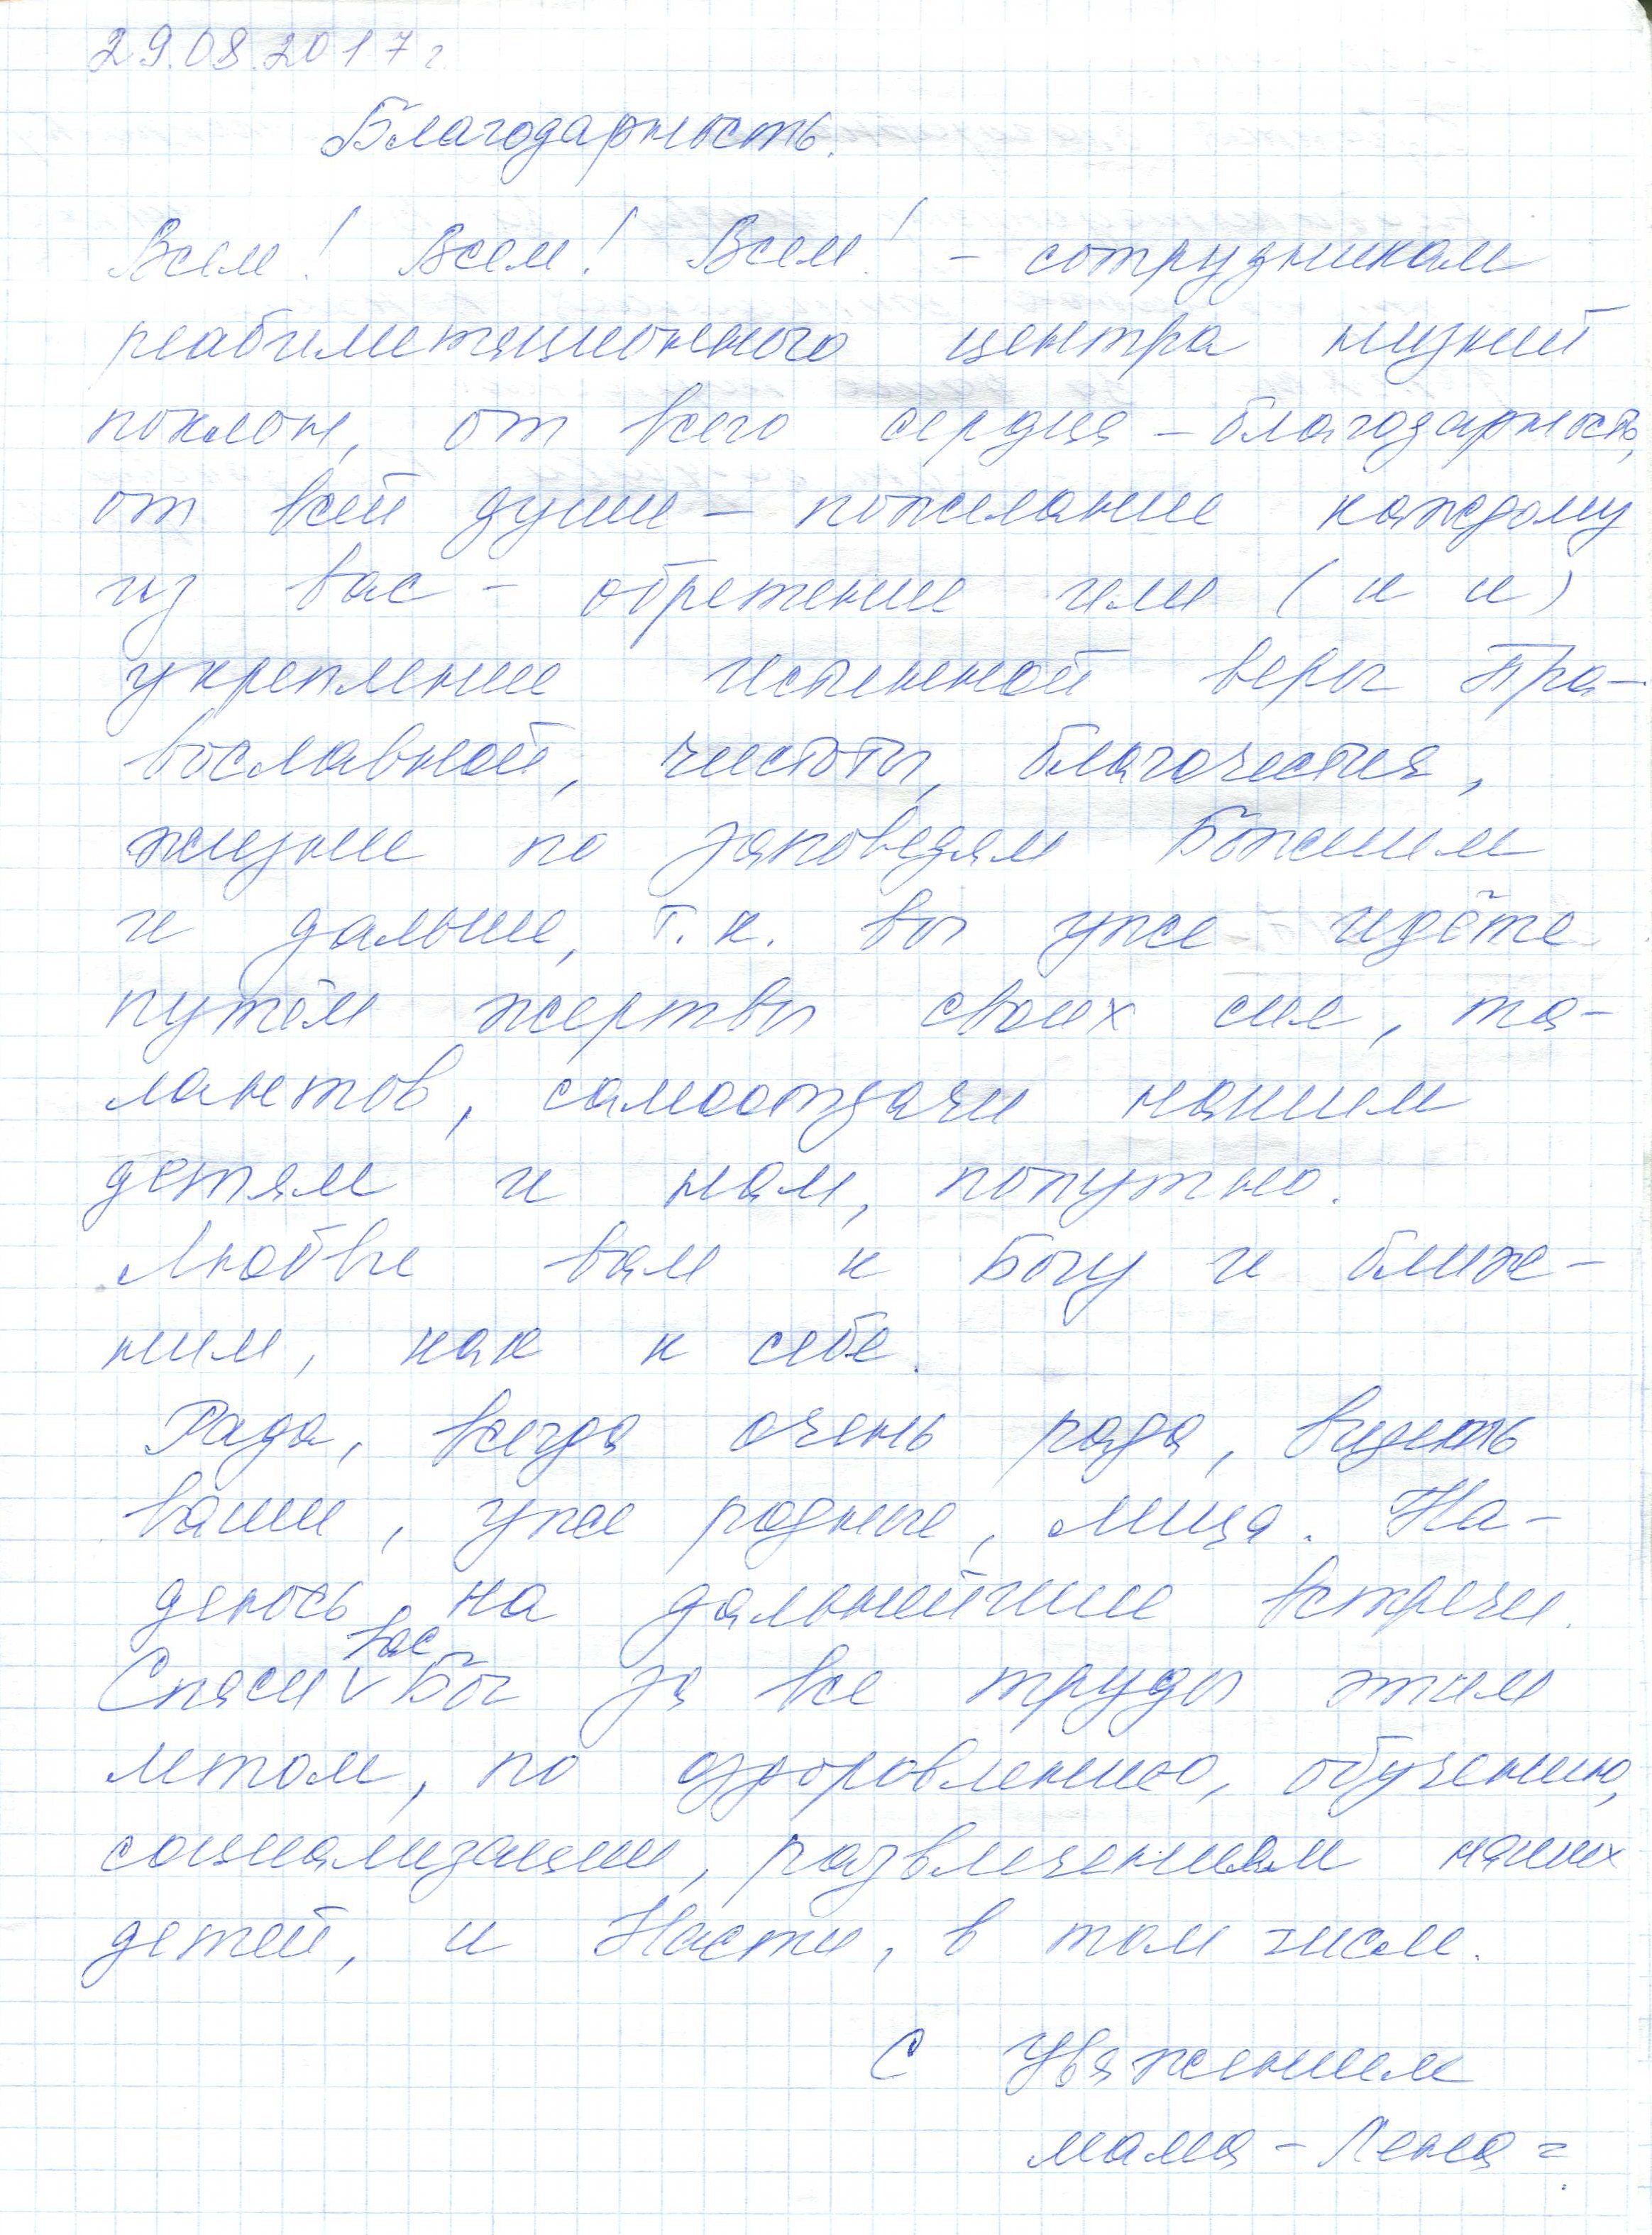 29.08.2017 г.
Благодарность.
Всем! Всем! Всем! - сотрудникам
реабилитационного центра низкий
поклон, от всего сердца - благодарность,
от всей души - пожелание каждому
из вас - обретение или (и и)
укрепление истинной веры Пра-
вославной, чистоты, благочестия,
жизни по заповедям Божиим
и дальше, т.к. вы уже идёте
путём жертвы своих сил, та-
лантов, самоотдачи нашим
детям и нам, попутно.
Любви вам к Богу и ближ-
ним, как к себе.
Рада, всегда очень рада, видеть
ваши, уже родные, лица. На-
деюсь на дальнейшие встречи.
Спаси вас Бог за все труды этим
летом, по оздоровлению, обучению,
социализации, развлечениям наших
детей, и Насти, в том числе.
С уважением
мама - Лена =